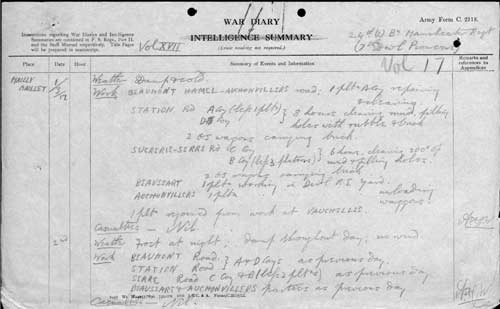 WAR DIARY
Army Form C. 2118.
INTELLIGENCE SUMMARY.
Instructions regarding War Diaries and Intelligence
Summaries are contained in F. S. Regs., Part II.
and the Staff Manual respectively. Title Pages
will be prepared in manuscript.
(Erase heading not required.)
Vol XVII
24th (S) Bn Manchester Regt
Vol 17
Place
Date
Hour
Summary of Events and Information
Remarks and
references to
Appendices
MAILLY
MAILLET
Weather Damp & cold.
Work BEAUMONT HAMEL-AUCHONVILLERS road. 1 plt A Coy repairing
& draining
STATION Rd A Coy (less 1 plt)
D Coy
8 hours clearing mud, filling
holes with rubble & brick
2 GS wagons carrying brick.
SUCRERIE-SERRE Rd C Coy
B Coy (less 3 platoons)
6 hours, clearing 300x of
mud & filling holes.
2 GS wagons carrying brick
BEAUSSART 1 plt working in Divl R.E. yard.
AUCHONVILLERS 1 plt unloading
waggons.
1 plt rejoined from work at VAUCHELLES.
Casualties - Nil
2nd
Weather Frost at night, damp throughout day, no wind
Work BEAUMONT Road
STATION Road
A & D Coys as previous day.
SERRE Road C Coy & B (less 3 plts) as previous day
BEAUSSART & AUCHONVILLERS parties as previous day
Casualties - Nil.